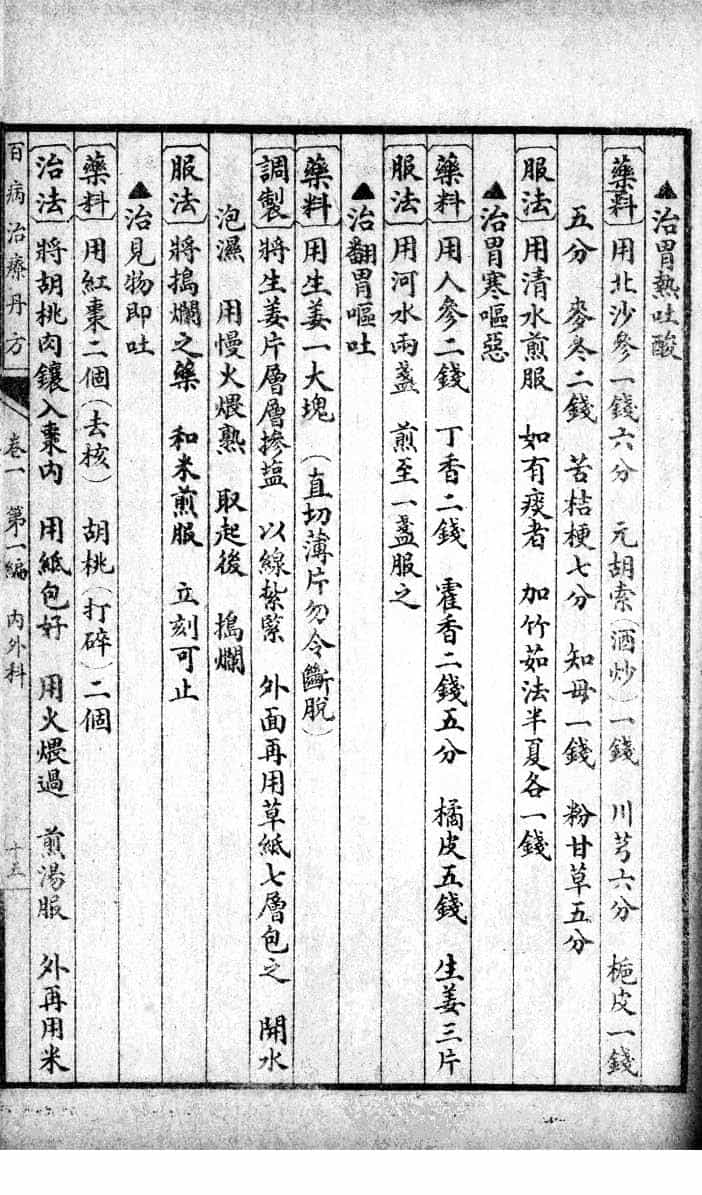 ▲治胃熱吐酸
藥料 用北沙參一錢六分 元胡索(酒炒)一錢 川芎六分 梔皮一錢
五分 麥冬二錢 苦桔梗七分 知母一錢 粉甘草五分
服法 用清水煎服 如有痰者 加竹茹法半夏各一錢
▲治胃寒嘔惡
藥料 用人參二錢 丁香二錢 霍香二錢五分 橘皮五錢 生姜三片
服法 用河水兩盞 煎至一盞服之
▲治翻胃嘔吐
藥料 用生姜一大塊 (直切薄片勿令斷脫)
調製 將生姜片層層摻塩 以線紮緊 外面再用草紙七層包之 開水
泡濕 用慢火煨熟 取起後 搗爛
服法 將搗爛之藥 和米煎服 立刻可止
▲治見物即吐
藥料 用紅棗二個(去核) 胡桃(打碎)二個
治法 將胡桃肉鑲入棗內 用紙包好 用火煨過 煎湯服 外再用米
百病治療丹方 卷一 第一編 內外科 十五